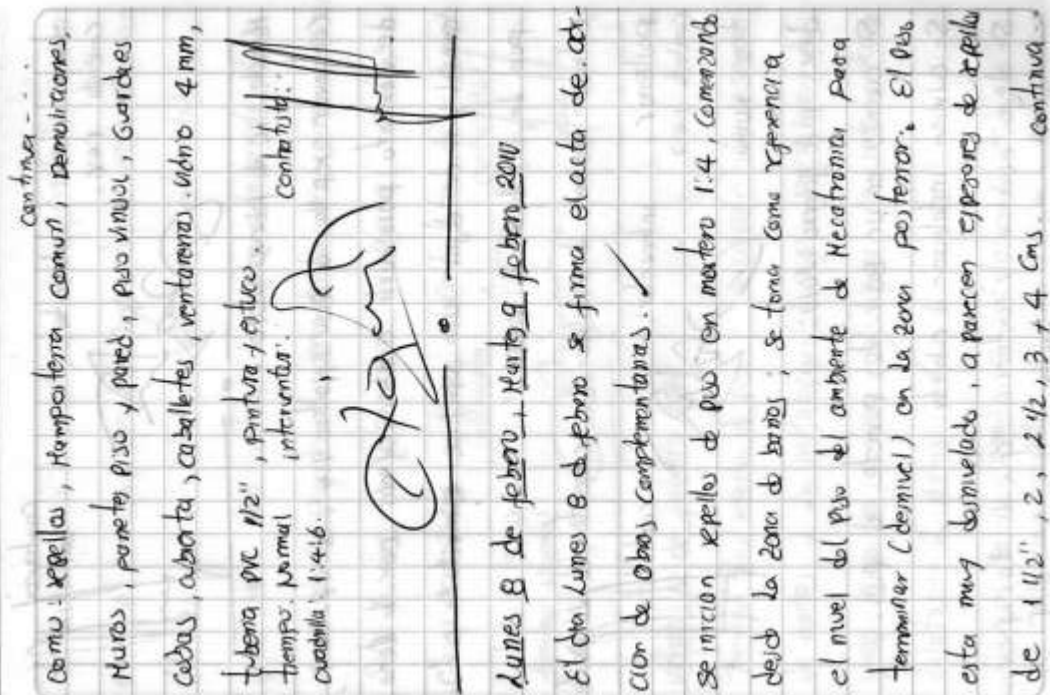 continua --
como: repellos, Mamposteria comun, Demoliciones,
Muros, panetes piso y pared, piso vinisol, Guardaes
cobas, cubierta, caballetes, ventanerias. vidrio 4 mm,
tuberia PVC 1/2", pintura y estuco.
tiempo: Normal interventor: contratista:
cuadrilla: 1:4:6.
Lunes 8 de febrero, Martes 9 febrero 2010
El dia Lunes 8 de febrero se firma el acta de adi-
cion de obras complementarias.
Se inician repellos de piso en mortero 1:4, comenzando
desde la zona de baños; se toma como referencia
el nivel del piso del ambiente de Mecatronica para
terminar (desnivel) en la zona posterior. El piso
esta muy desnivelado, aparecen espesores de repello
de 1 1/2", 2, 2 1/2, 3 y 4 Cms. continua--